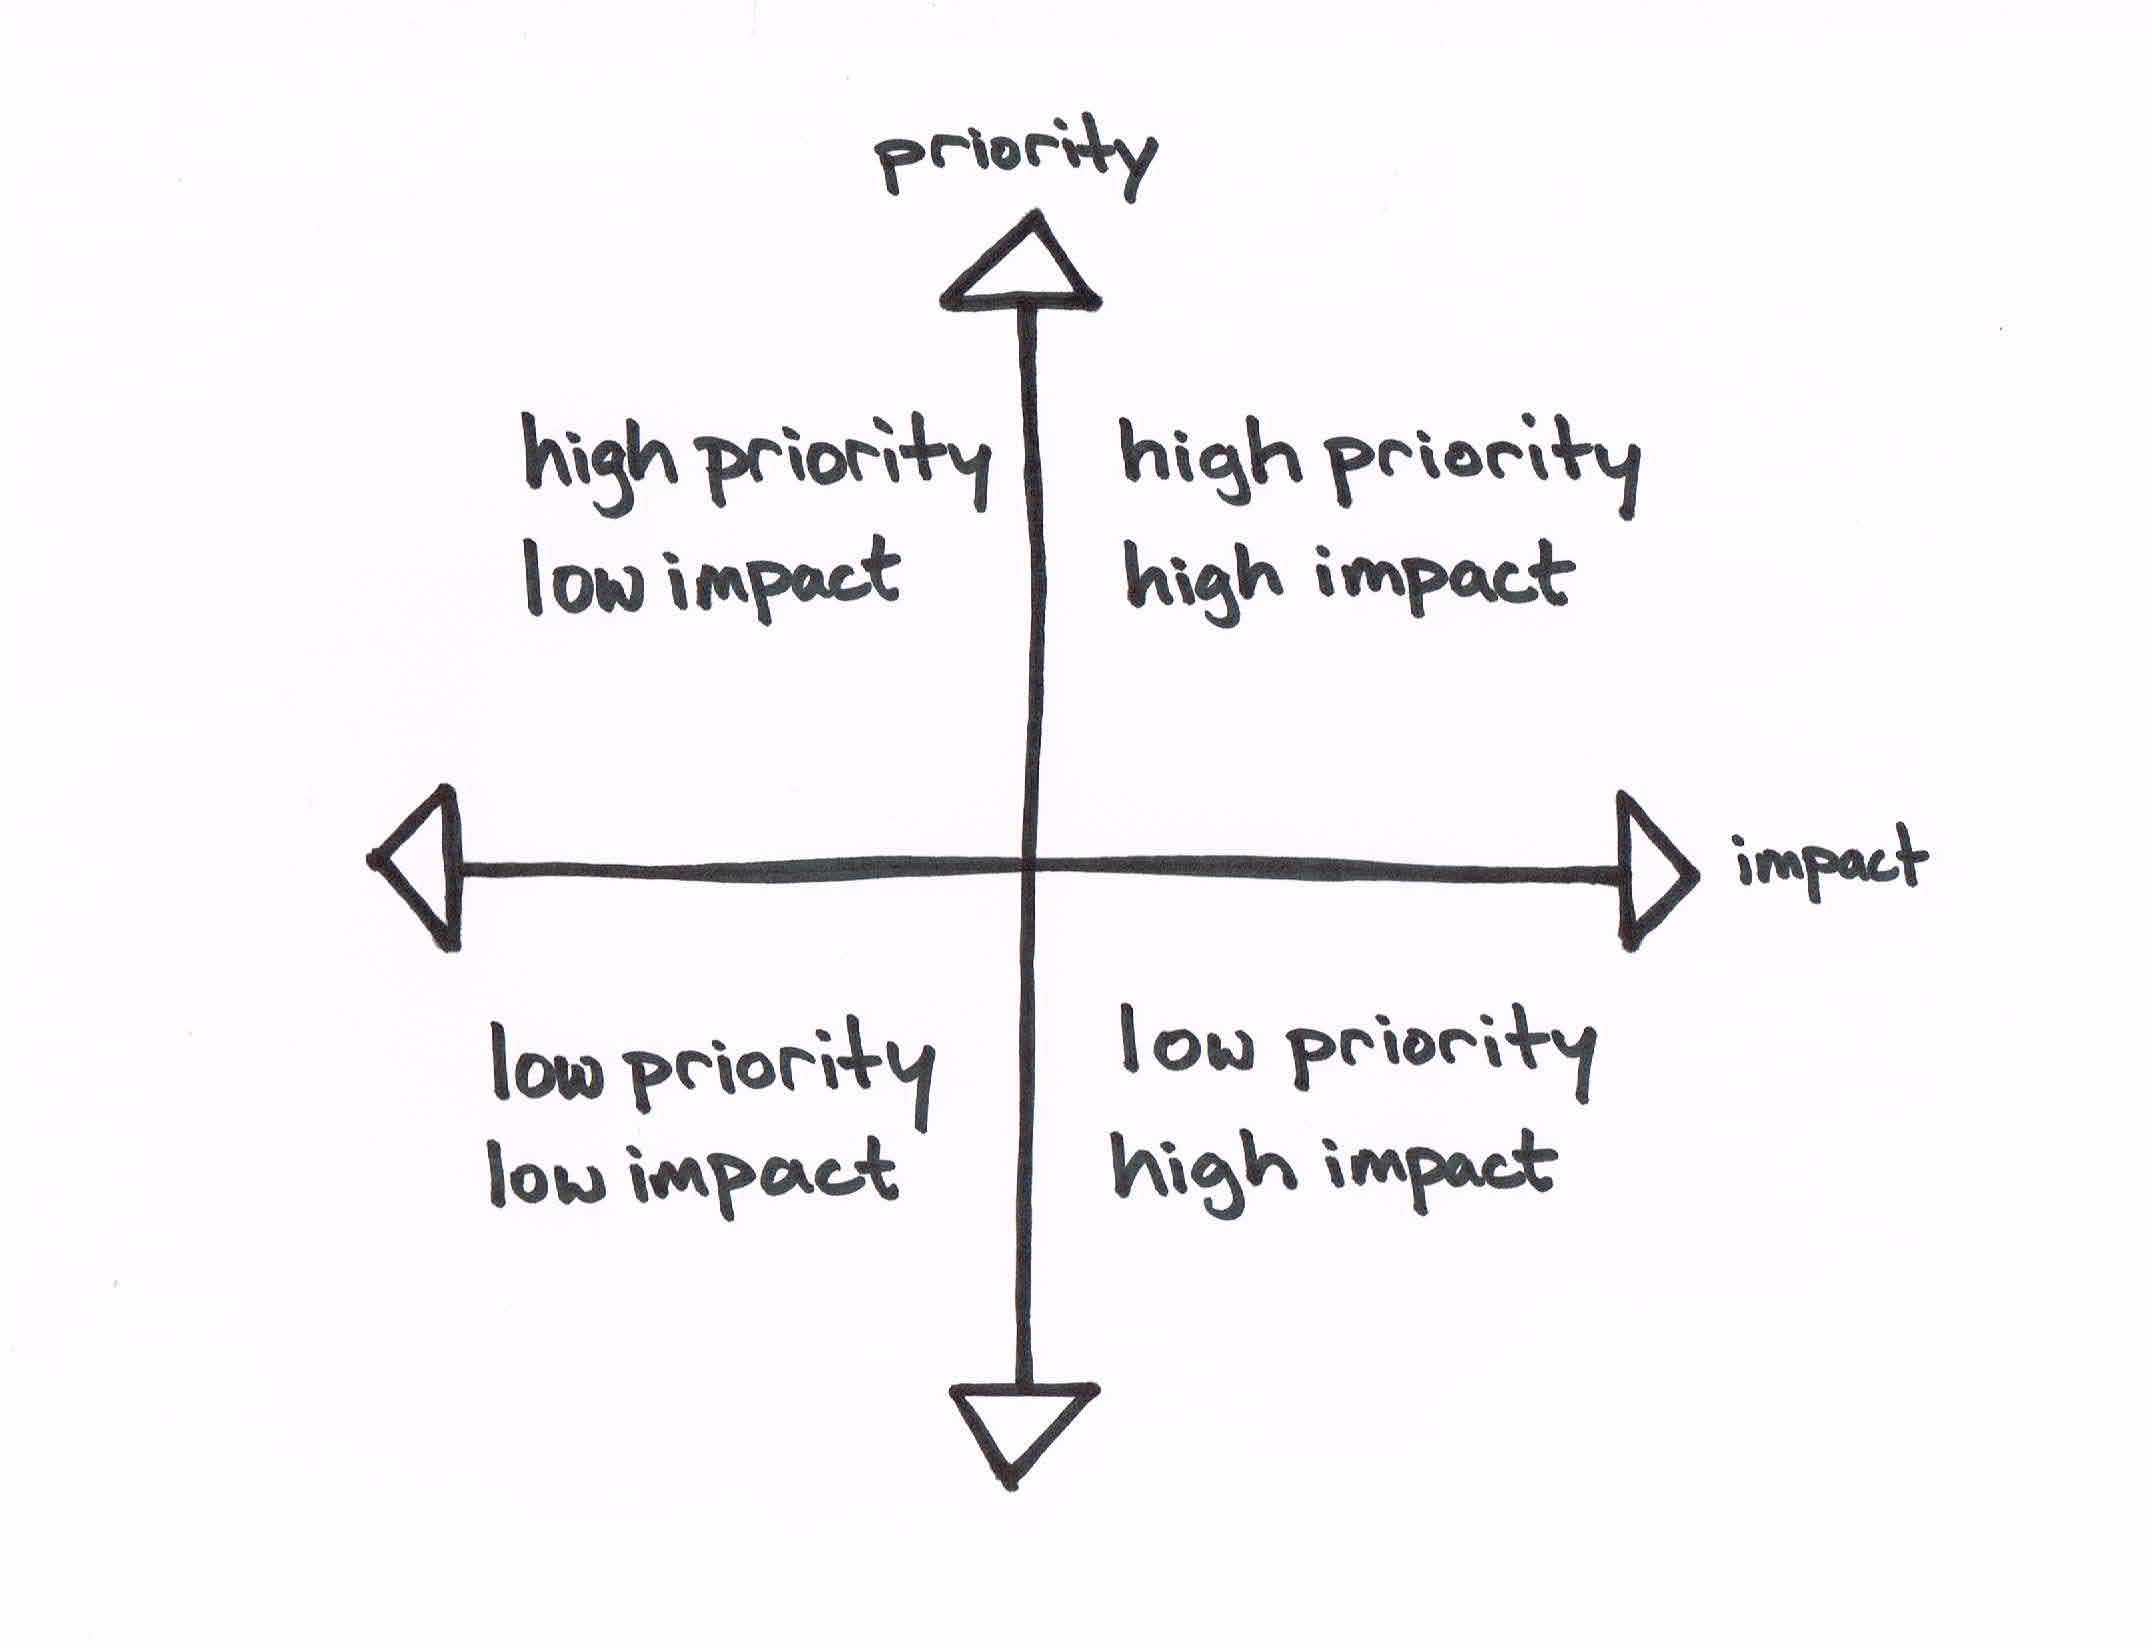 priority
high priority
low impact
high priority
high impact
impact
low priority
low impact
low priority
high impact